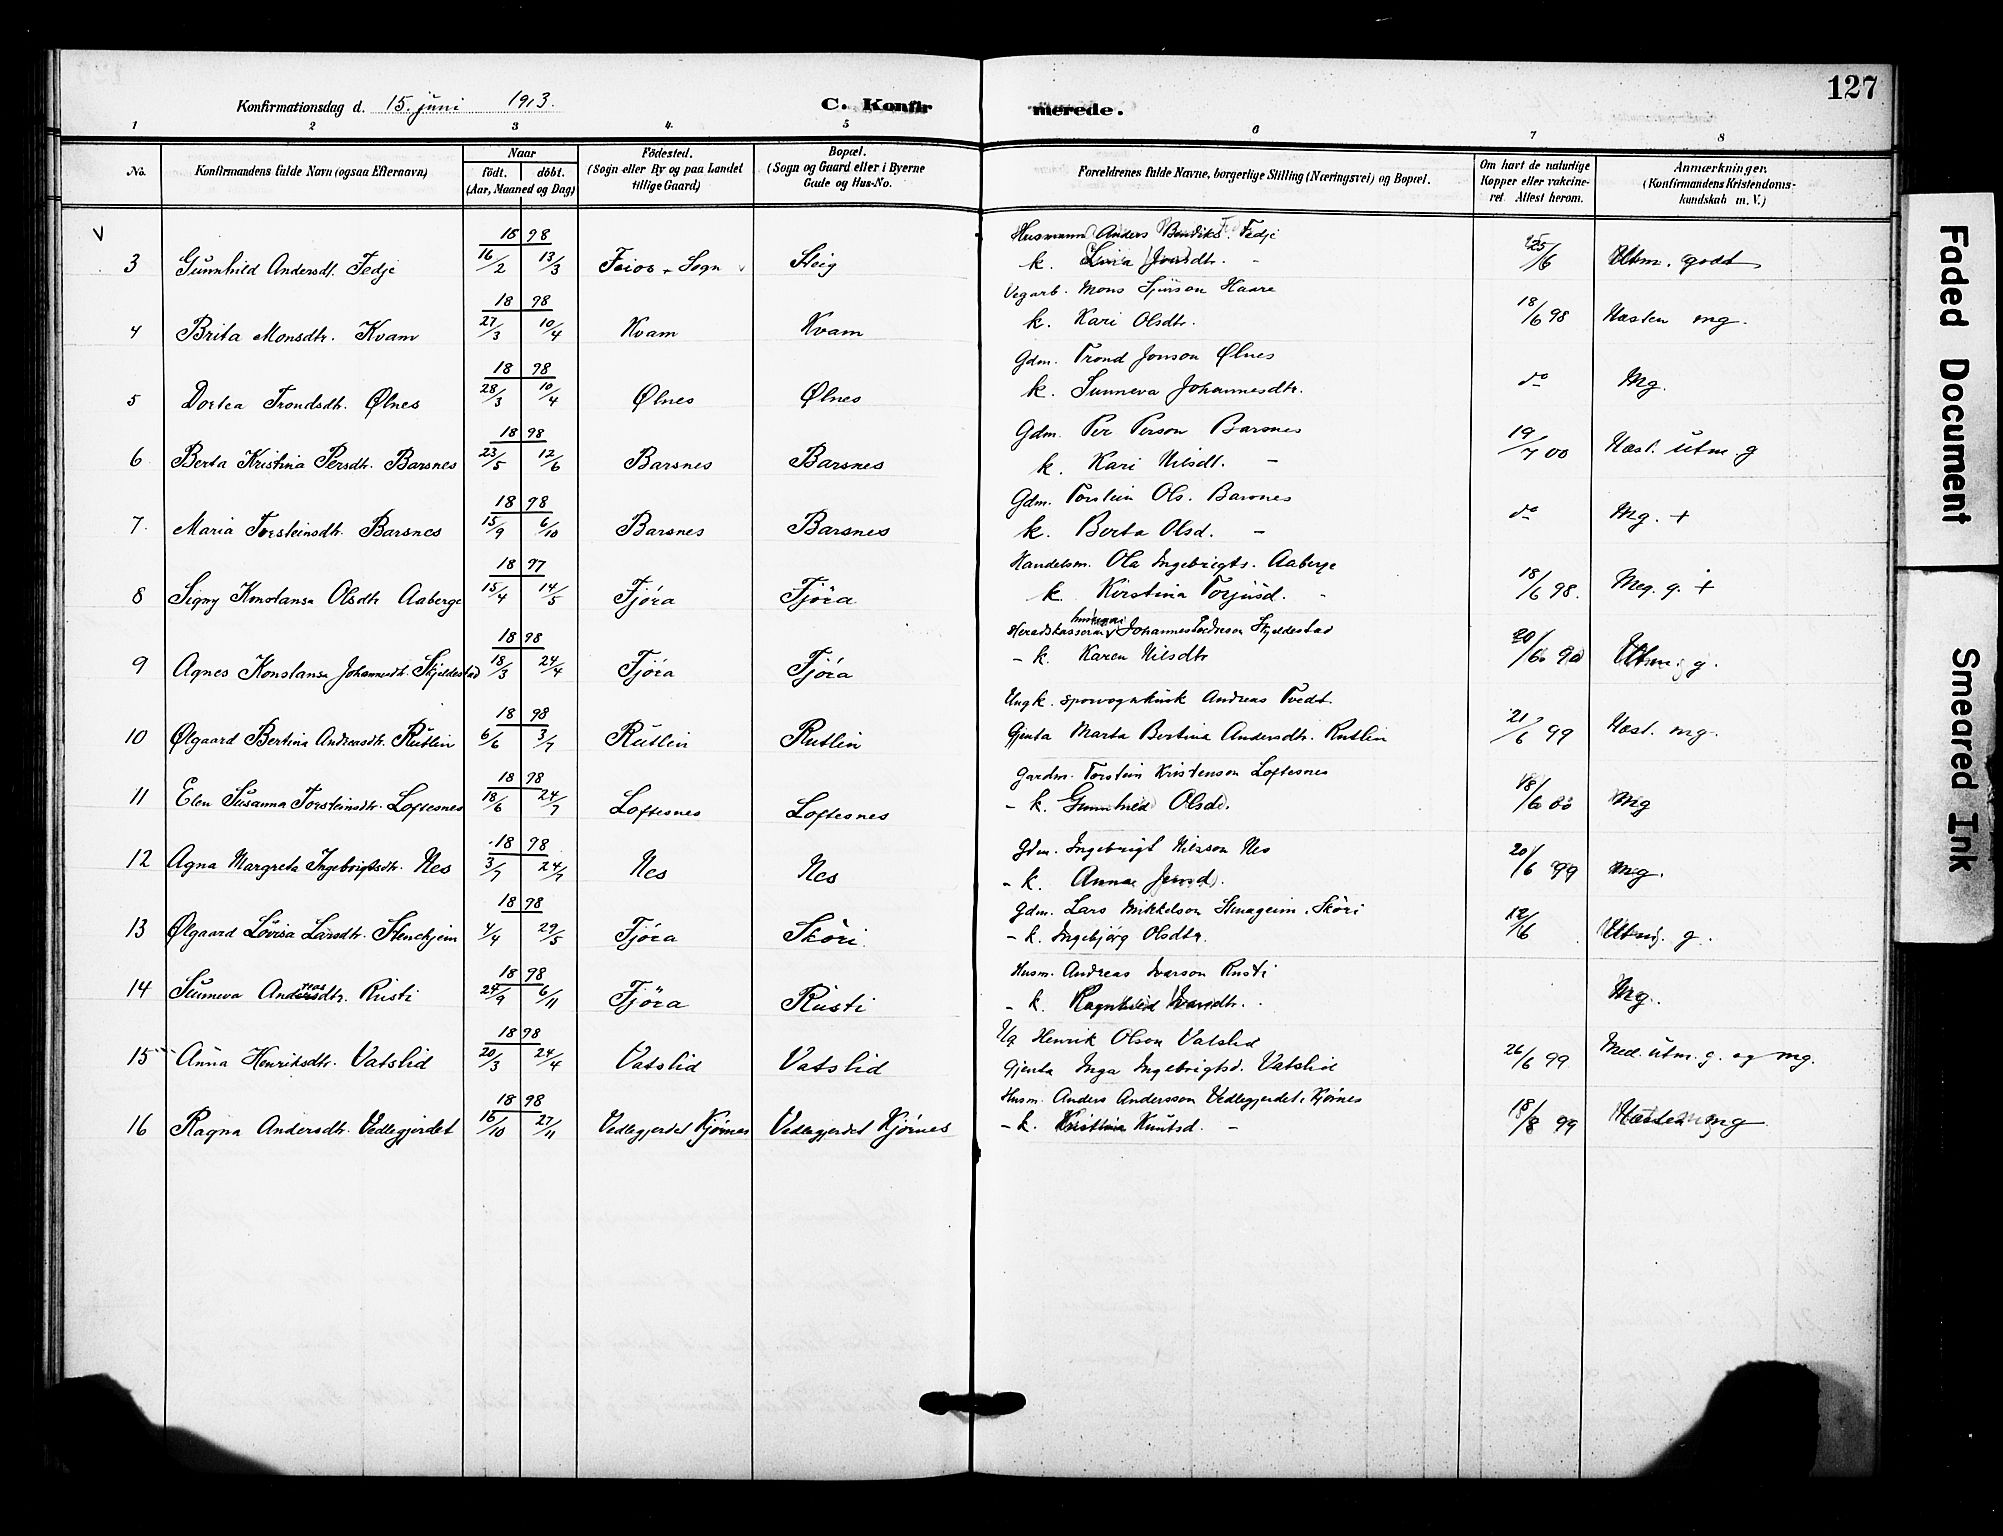 127
Konfirmationsdag d. 15. juni 1913.
C. Konfirmerede.
1 2 3 4. 5 6 7 8
No. Konfirmandens fulde Navn (ogsaa Efternavn) Naar födt. döbt. (Aar, Maaned og Dag) Födested. (Sogn eller By og paa Landet tillige Gaard) Bopæl. (Sogn og Gaard eller i Byerne Gade og Hus-No. Forældrenes fulde Navne, borgerlige Stilling (Næringsvei) og Bopæl. Om havt de naturlige Kopper eller vakcineret. Attest herom. Anmærkninger. (Konfirmandens Kristendomskundskab m. V.)
V
18 98 Husmann Anders Bendiks. Fedje
3 Gunnhild Andersdt. Fedje 16/2 13/3 Feios Sogn Steig k. /6 Utm. godt
18 98 Vegarb. Mons Sjurson Haare
4 Brita Monsdtr. Kvam 27/3 10/4 Kvam Kvam k. Kari Olsdtr. 18/6 98 Næsten mg.
18 98 Gdm. Trond Jonson Ølnes
5 Dortea Trondsdtr. Ølnes 28/3 10/4 Ølnes Ølnes k. Sunneva Johannesdtr. do Mg.
18 98 Gdm. Per Person Barsnes
6 Berta Kristina Persdtr. Barsnes 23/5 12/6 Barsnes Barsnes k. Kari Nilsdt. - 19/7 00 Næst. utm. g
18 98 Gdm. Torstein Ols. Barsnes
7. Maria Torsteinsdtr. Barsnes 15/9 6/10 Barsnes Barsnes k. Berta Olsd. - do Mg. +
18 97 Handelsm. Ola Ingebrigts. Aaberge
8 Signy Konstansa Olsdtr Aaberge 15/4 14/5 Fjöra Fjöra k. Kirstina Torjusd. - 18/6 98. Meg. g. +
18 98 Heradskasserar Johannes Skjeldestad
9 Agnes Konstansa Johannesdtr. Skjeldestad 18/3 24/4 Fjöra Fjöra - k. Karen Nilsdtr 20/6 Utm. g.
18 98 Ungk. sporvognkusk Andreas Tvedt
10 Ølgaard Bertina Andreasdtr. Rutlin 6/6 3/7 Rutlin Rutlin Gjenta Marta Bertina Andersdtr. Rutlin 21/6 99 Næst. mg.
18 98 Gardm. Torstein Kristenson Loftesnes
11 Elen Susanna Torsteinsdtr. Loftesnes 18/6 24/7 Loftesnes Loftesnes - k. Gunnhild Olsd. 18/6 00 Mg
18 98 Gdm. Ingebrigt Nilsson Nes
12 Agna Margreta Ingebrigtsdtr. Nes 3/7 24/7 Nes Nes - k. Annae 20/6 99 Mg.
18 98 Gdm. Lars Mikkelson Stenageim. Sköri
13 Ølgaard Lovisa Larsdtr. Stenehjeim 4/4 29/5 Fjöra Sköri - k. Ingebjörg Olsdtr. 12/6 Utm. g.
18 98 Husm. Andreas Ivarson Rusti
14 Sunneva Andreasdtr. Rusti 24/9 6/11 Fjöra Rusti - k. Ragnhild Ivarsdtr. Mg.
18 98 Henrik Olson Vatslid
15 Anna Henriksdtr. Vatslid 20/3 24/4 Vatslid Vatslid Gjenta Inga Ingebrigtsd. Vatslid 26/6 99 Med. utm. g. og mg.
18 98 Husm. Anders Andersson Vedlegjerdet, Kjørnes
16 Ragna Andersdtr. Vedlegjerdet 16/10 27/11 Vedlegjerdet Kjørnes Vedlegjerdet Kjørnes - k. Kristina Knutsd. - 18/8 99 Næsten mg
Faded Document
Smeared Ink